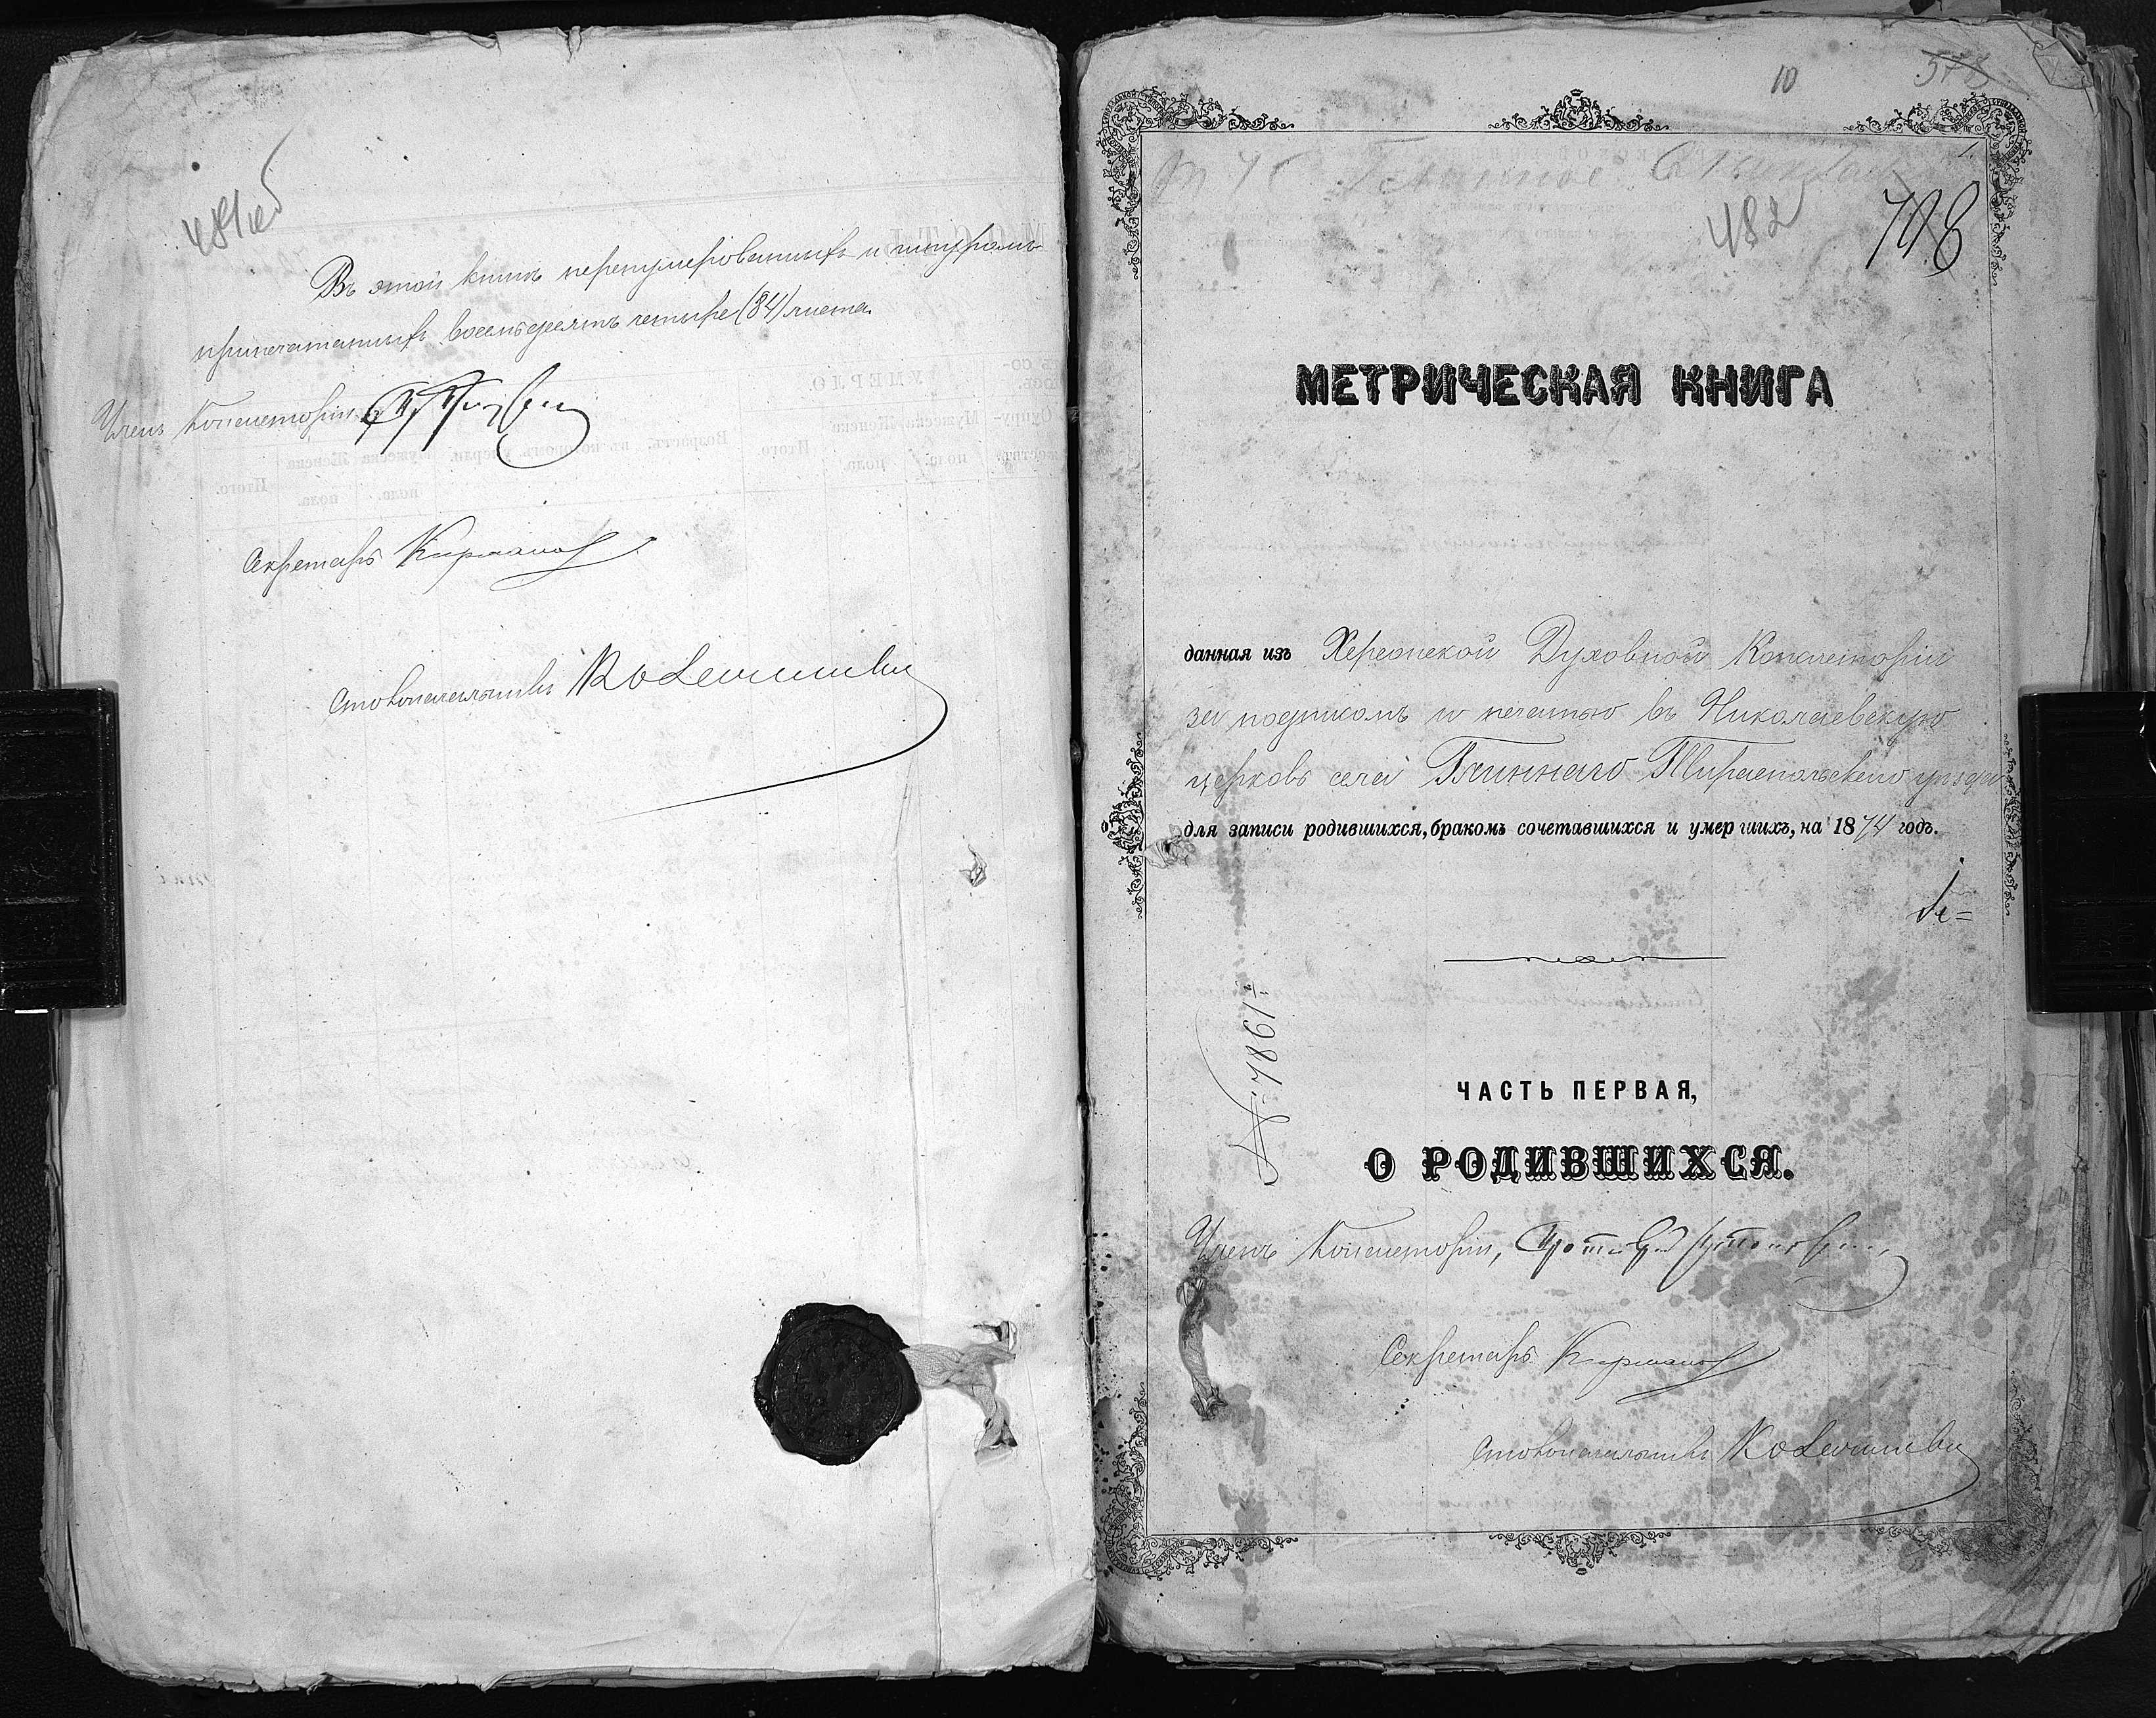 481об
Въ этой книгѣ перенумерованныхъ и шнуромъ
припечатанныхъ восемьдесятъ четыре (84) листа.
Членъ Консисторіи
Секретарь
Столоначальникъ
10
578
482
708
МЕТРИЧЕСКАЯ КНИГА
данная изъ Херсонской Духовной Консисторіи
за подписомъ и печатью въ Николаевскую
церковь села Глиннаго Тираспольскаго уѣзда
для записи родившихся, бракомъ сочетавшихся и умершихъ, на 1874 годъ.
№ 7861
ЧАСТЬ ПЕРВАЯ,
О РОДИВШИХСЯ.
Членъ Консисторіи,
Секретарь
Столоначальникъ